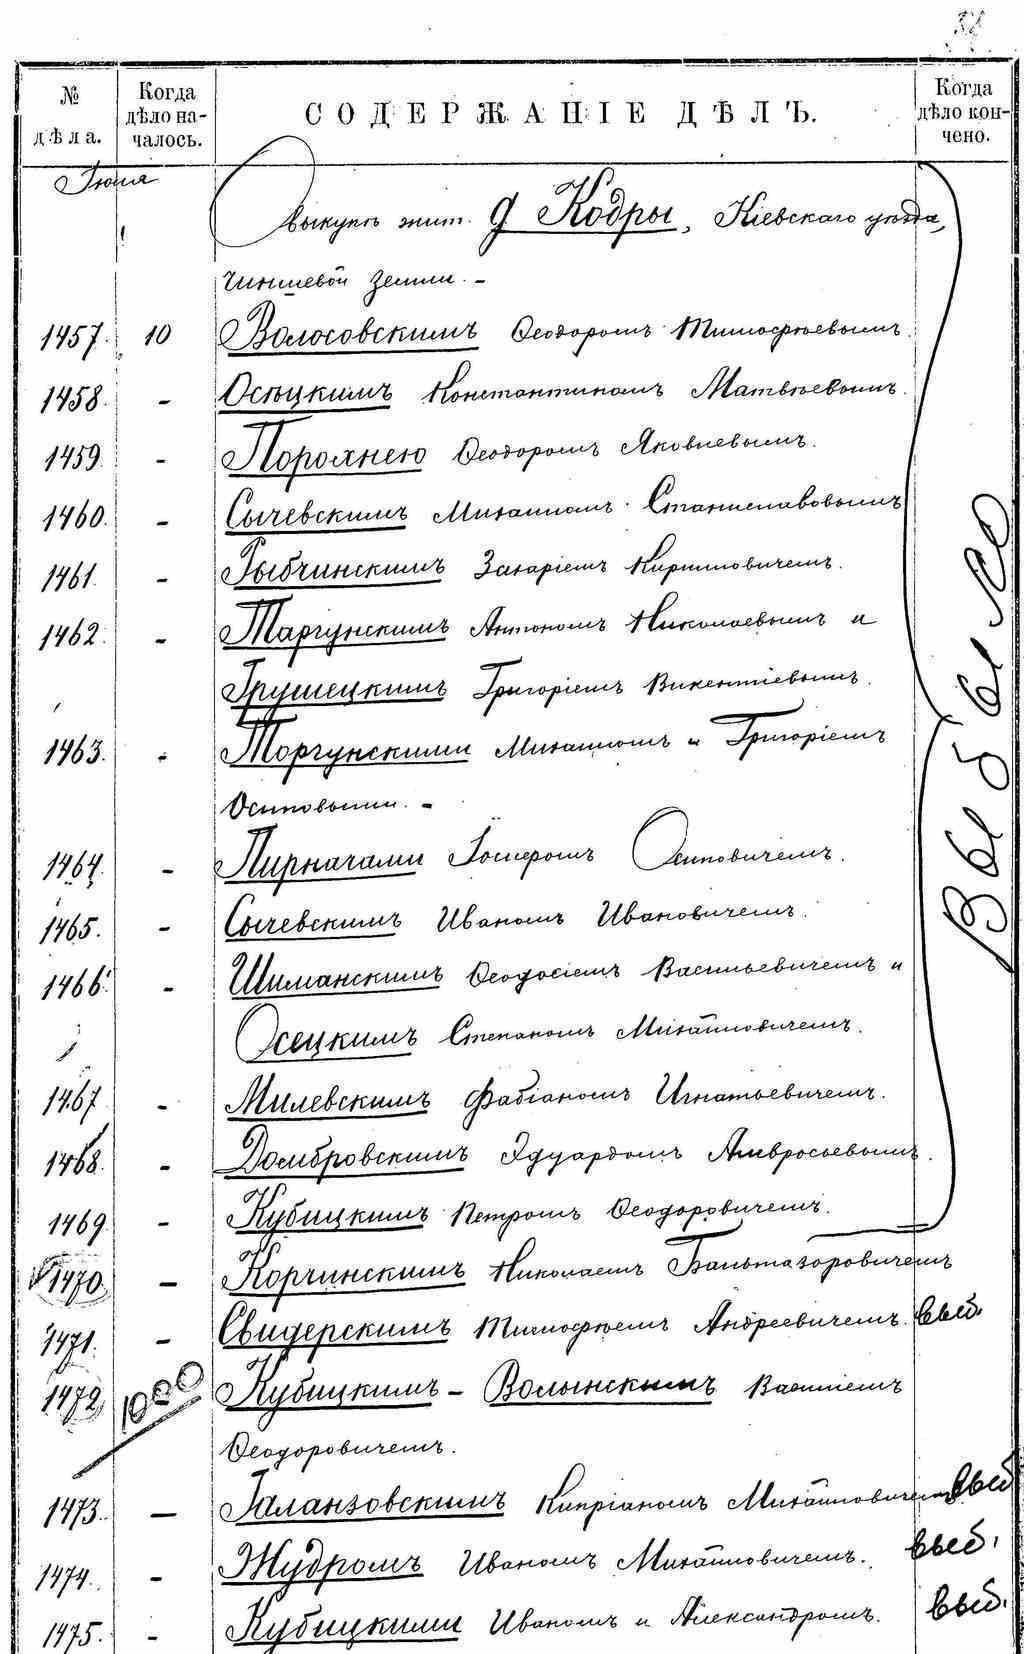 № дѣла.
Когда дѣло началось.
СОДЕРЖАНІЕ ДѢЛЪ.
Когда дѣло кончено.
Іюня
Выкупъ жит. д. Кодры, Кіевскаго уѣзда,
чиншевой земли. –
1457. 10 Волосовскимъ Ѳеодоромъ Тимоѳѣевымъ.
1458. – Осѣцкимъ Константиномъ Матвѣевымъ.
1459. – Порохнею Ѳеодоромъ Яковлевымъ.
1460. – Сычевскимъ Михаиломъ Станиславовымъ
1461. – Рыбчинскимъ Захаріемъ Кирилловичемъ.
1462. – Таргунскимъ Антономъ Николаевымъ и
Грушецкимъ Григоріемъ Викентіевымъ.
1463. – Торгунскими Михаиломъ и Григоріемъ
Осиповыми. –
1464. – Пирначами Іосифомъ Осиповичемъ.
1465. – Сычевскимъ Иваномъ Ивановичемъ.
1466. – Шиманскимъ Ѳеодосіемъ Васильевичемъ и
Осецкимъ Степаномъ Михайловичемъ.
1467. – Милевскимъ Фабіаномъ Игнатьевичемъ.
1468. – Домбровскимъ Эдуардомъ Амвросьевымъ.
1469. – Кубицкимъ Петромъ Ѳеодоровичемъ.
Выбыло
1470. – Корчинскимъ Николаемъ Бальтазоровичемъ
1471. – Свидерскимъ Тимоѳѣемъ Андреевичемъ. выб.
1472. 1000 Кубицкимъ – Волынскимъ Василіемъ
Ѳеодоровичемъ.
1473. – Галанзовскимъ Кипріаномъ Михайловичемъ выб
1474. – Жудромъ Иваномъ Михайловичемъ. выб.
1475. – Кубицкими Иваномъ и Александромъ. выб.